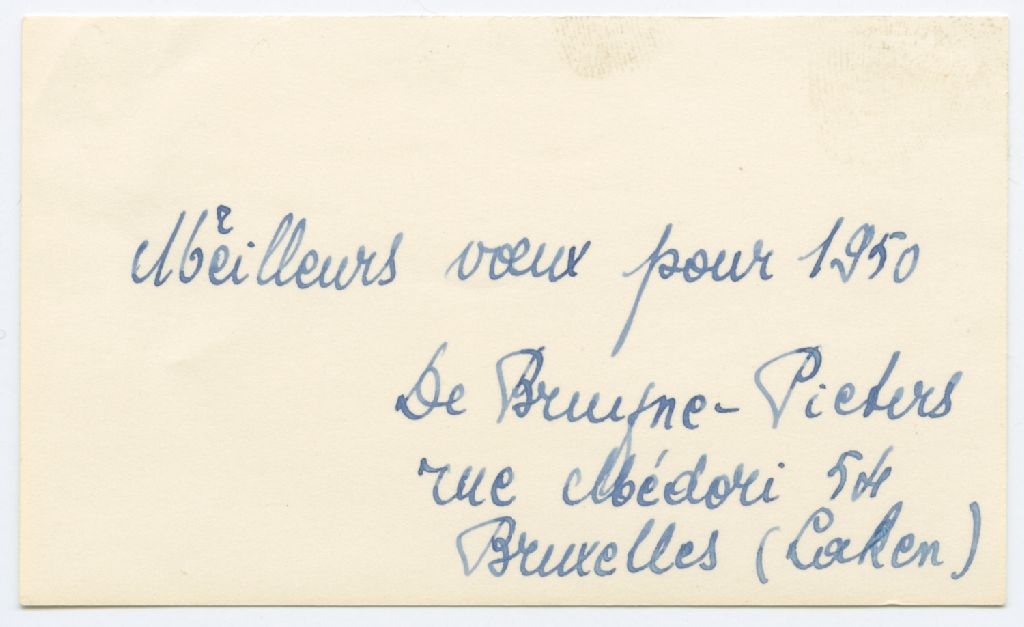 Meilleurs vœux pour 1950
De Bruyne - Pieters
rue Médori 54
Bruxelles (Laken)